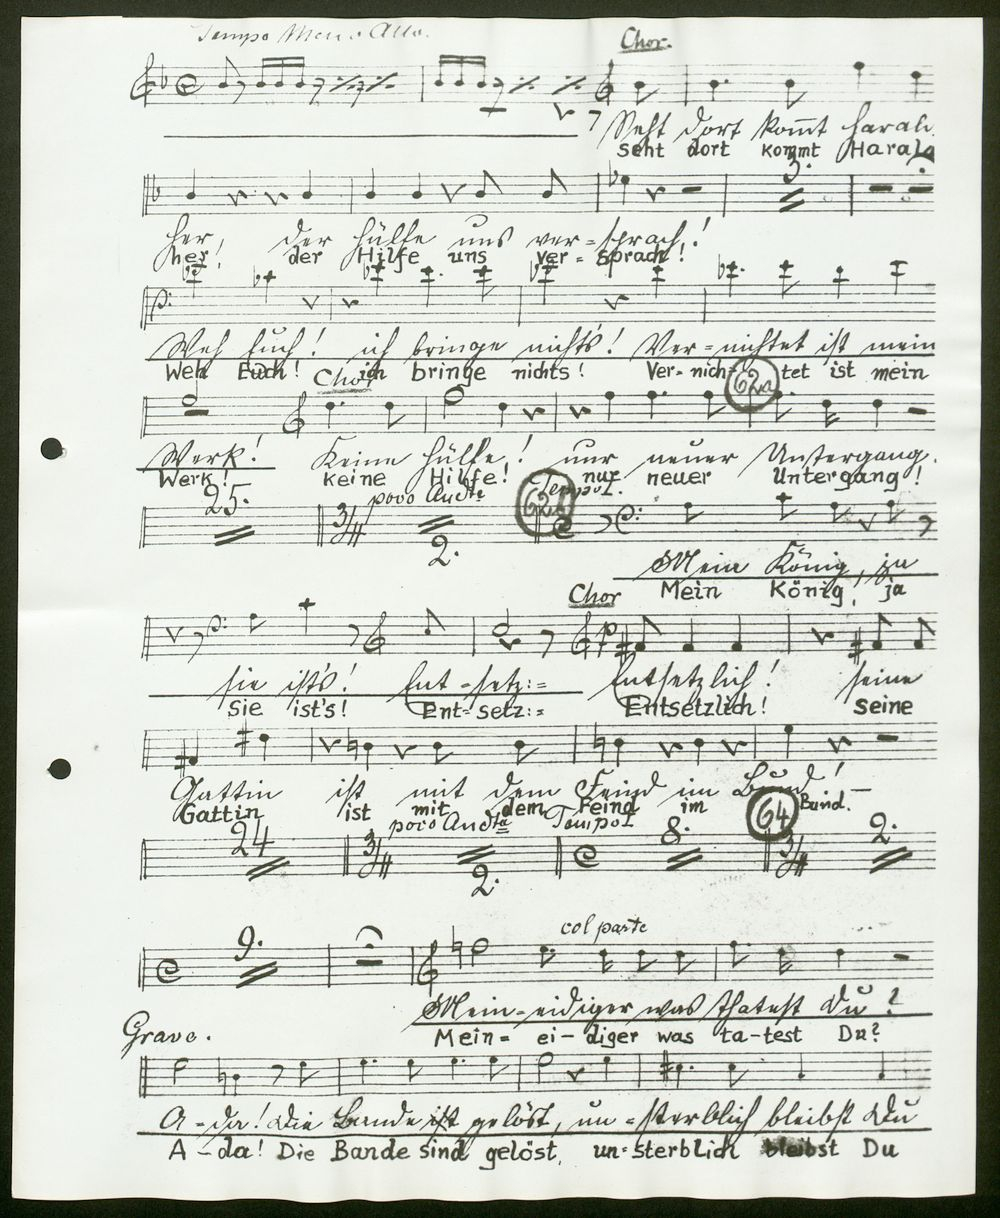 Tempo Meno Allo.
Chor.
Seht dort kom̄t Harald
seht dort kommt Harald
3.
her, der Hülfe uns ver=sprach!
her, der Hilfe uns ver= sprach!
Weh Euch! ich bringe nichts! Ver=nichtet ist mein
Weh Euch! ich bringe nichts! Ver=nich= tet ist mein
Chor
62a
Werk! Keine Hülfe! nur neuer Untergang.
Werk! keine Hilfe! nur neuer Untergang!
25. poco Andte Tempo I.
3/4 2.
Mein König, ja
Mein König, ja
Chor
sie ist's! Ent=setz:= Entsetzlich! seine
Sie ist's! Ent=setz:= Entsetzlich! seine
Gattin ist mit dem Feind im Bund!
Gattin ist mit dem Feind im Bund.
poco Andte Tempo I 64
24 3/4 2. 8. 3/4 2.
9. col parte
Mein=eidiger was thatest Du?
Mein= ei- diger was ta-test Du?
Grave.
A=da! Die Bande ist gelöst, un=sterblich bleibst Du
A-da! Die Bande sind gelöst, un=sterblich bleibst Du